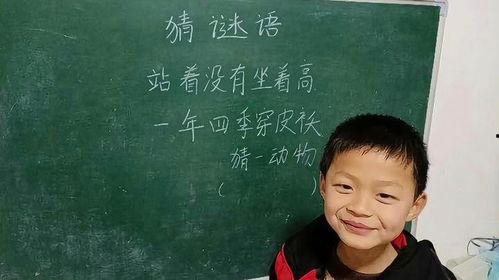 猜谜语
站着没有坐着高
一年四季穿皮袄
猜一动物
( )